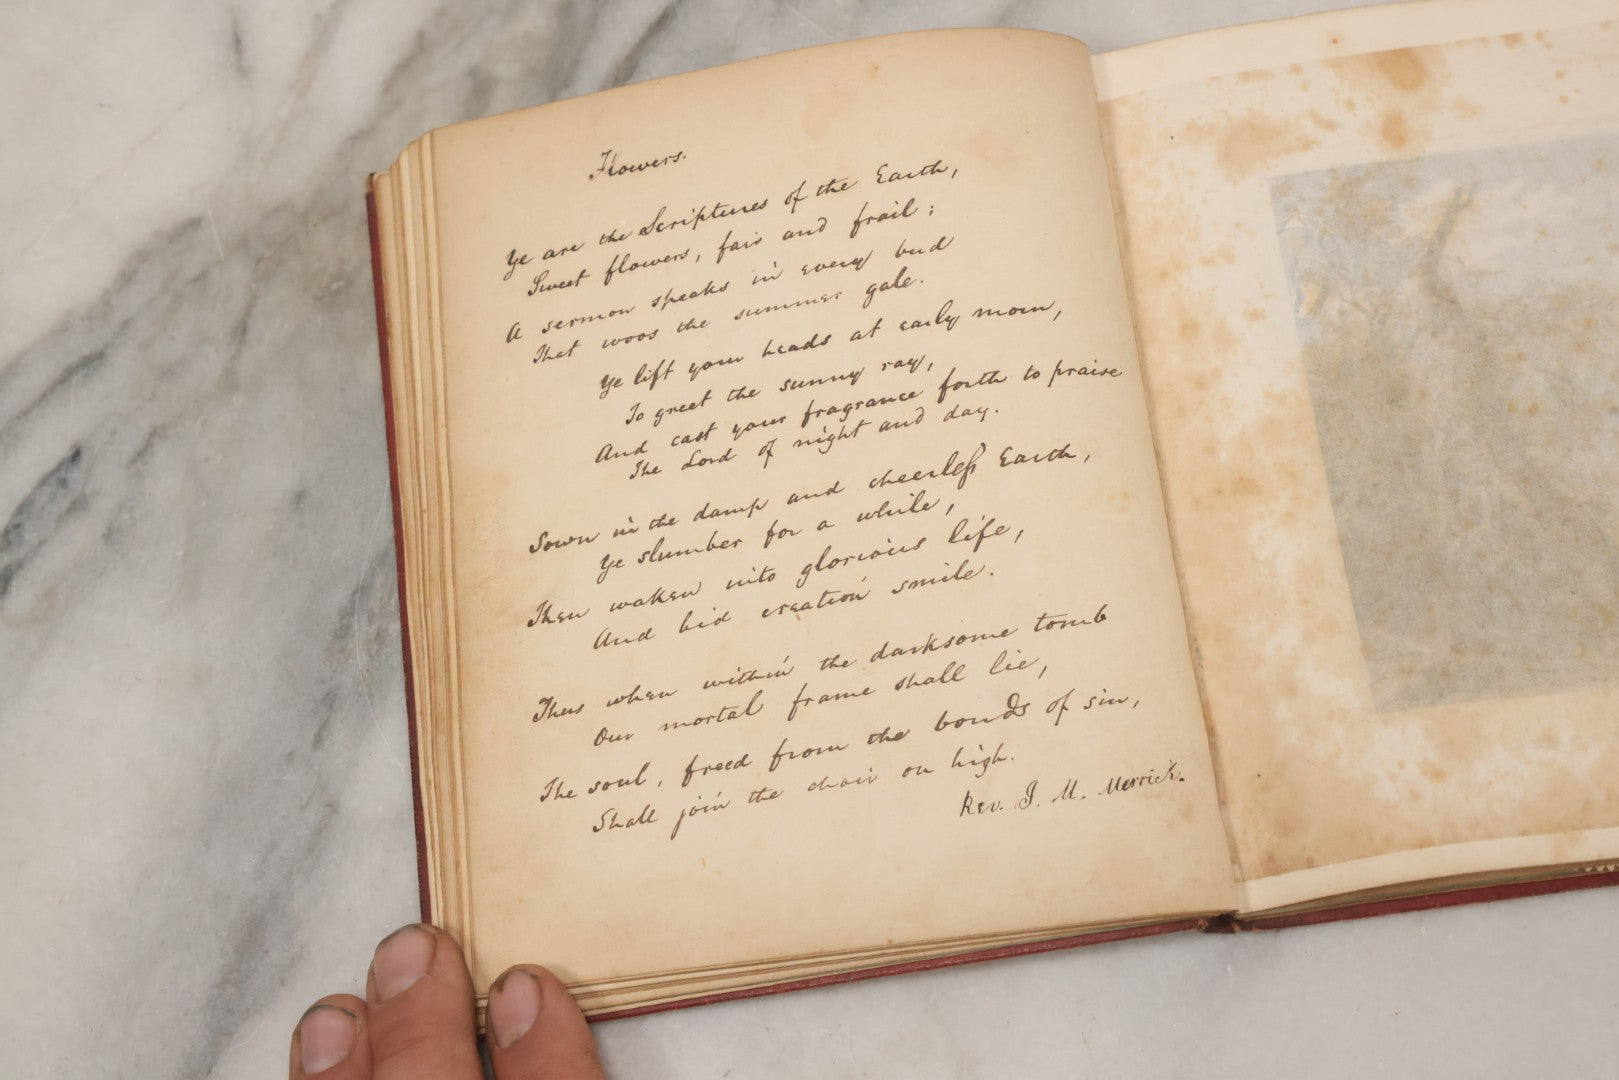 Flowers.
Ye are the Scriptures of the Earth,
Sweet flowers, fair and frail;
A sermon speaks in every bud
That woos the summer gale.
Ye lift your heads at early morn,
To greet the sunny ray,
And cast your fragrance forth to praise
The Lord of night and day.
Sown in the damp and cheerless Earth,
Ye slumber for a while,
Then waken into glorious life,
And bid creation smile.
Thus when within the darksome tomb
Our mortal frame shall lie,
The soul, freed from the bonds of sin,
Shall join the choir on high.
Rev. J. M. Merrick.